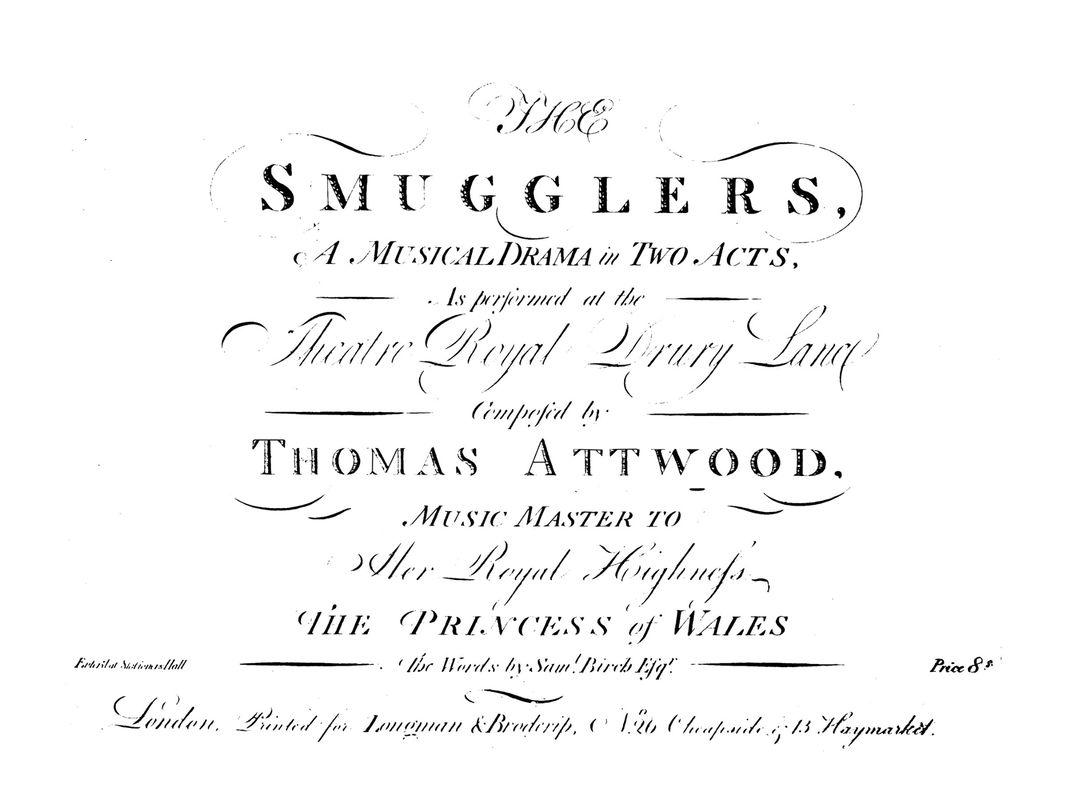 THE
SMUGGLERS,
A MUSICAL DRAMA in TWO ACTS,
As performed at the
Theatre Royal Drury Lane
Compoſed by
THOMAS ATTWOOD,
MUSIC MASTER TO
Her Royal Highneſs
THE PRINCESS of WALES
Enter'd at Stationers Hall
The Words by Sam.l Birch Eſq.r
Price 8s.
London, Printed for Longman & Broderip, No. 26 Cheapside & 13 Haymarket.